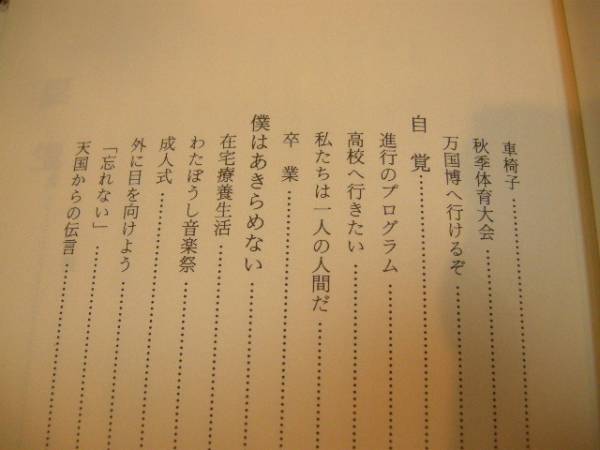 車椅子
秋季体育大会
万国博へ行けるぞ
自覚
進行のプログラム
高校へ行きたい
私たちは一人の人間だ
卒業
僕はあきらめない
在宅療養生活
わたぼうし音楽祭
成人式
外に目を向けよう
「忘れない」
天国からの伝言